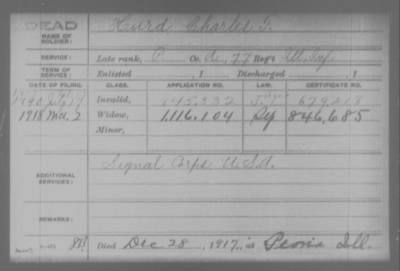 DEAD Hurd, Charles T.
NAME OF SOLDIER:
SERVICE: Late rank, P. Co. A, 77 Reg't Ill. Inf.
TERM OF SERVICE: Enlisted , 1 Discharged , 1
DATE OF FILING. CLASS. APPLICATION NO. LAW. CERTIFICATE NO.
1890 July 17 Invalid, 845.332
1918 Mar. 2 Widow, 1,116.104 846,685
Minor,
ADDITIONAL SERVICES: Signal Corps U.S.A.
REMARKS:
Died Dec 28, 1917, at Peoria Ill.